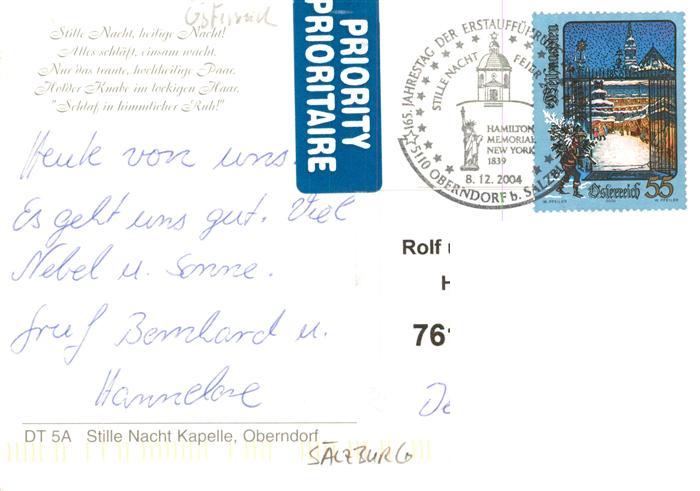 Österreich
Stille Nacht, heilige Nacht!
Alles schläft, einsam wacht.
Nur das traute, hochheilige Paar.
Holder Knabe im lockigen Haar,
"Schlaf in himmlischer Ruh!"
PRIORITY
PRIORITAIRE
165. JAHRESTAG DER ERSTAUFFÜHRUNG
STILLE NACHT FEIER
HAMILTON
MEMORIAL
NEW YORK
1839
8. 12. 2004
5110 OBERNDORF b. SALZB
Weihnachten
Österreich 55
W. PFEILER
Heute von uns.
Es geht uns gut. Viel
Nebel u. Sonne.
Gruß Bernhard u.
Hannelore
Rolf
H
761
De
DT 5A Stille Nacht Kapelle, Oberndorf
SALZBURG